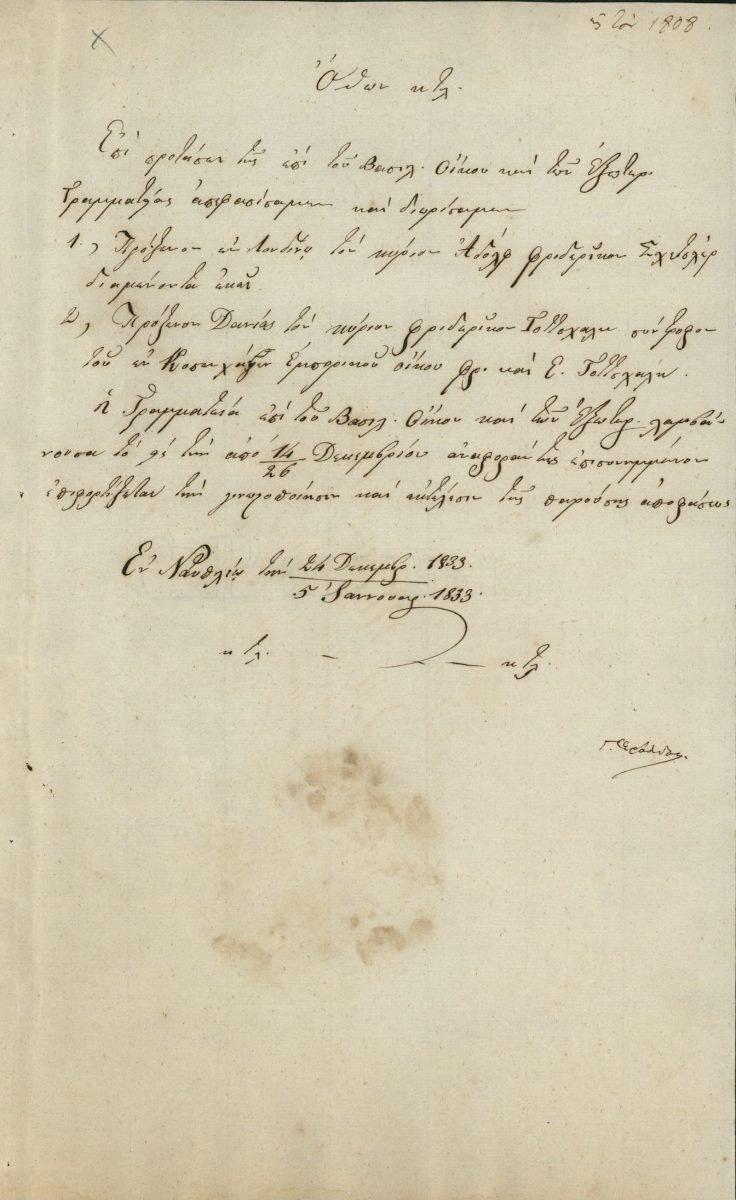 5 τοῦ 1808.
Ὄθων κτλ.
Ἐπὶ προτάσει τῆς ἐπὶ τοῦ Βασιλ. Οἴκου καὶ τῶν Ἐξωτερ.
Γραμματείας ἀπεφασίσαμεν καὶ διορίσαμεν
1., Πρόξενον ἐν Λονδίνῳ τὸν κύριον Ἀδόλφ Φριδερίκον
διαμένοντα ἐκεῖ.
2, Πρόξενον Δανίας τὸν κύριον Φριδερῖκον Γοττσχαλκ σύντροφον
τοῦ ἐν Κοπενχάγεν ἐμπορικοῦ οἴκου Φρ. καὶ Ε. Γοττσχαλκ.
Ἡ Γραμματεία ἐπὶ τοῦ Βασιλ. Οἴκου καὶ τῶν Ἐξωτερ. λαμβάνουσα
τὸ μὲ τὴν ἀπὸ 14/26 Δεκεμβρίου ἀναφοράν της ἐπισυνημμένον
ἐπιφορτίζεται τὴν κοινοποίησιν καὶ ἐκτέλεσιν τῆς παρούσης ἀποφάσεως
Ἐν Ναυπλίῳ τὴν 24 Δεκεμβρ. 1833.
5 Ἰαννουαρ. 1833.
κτλ. — — κτλ.